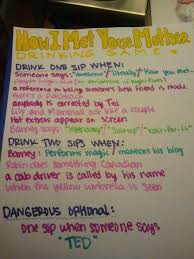 How I Met Your Mother
DRINKING GAME
DRINK ONE SIP WHEN:
Someone says: "awesome / literally / Have you met...
people high five
a reference to being someone's best friend is made
anybody is corrected by Ted
Lily and Marshall act like a couple
Hot extras appear on screen
Barney says: "legendary" / "suit-up"
DRINK TWO SIPS WHEN:
Barney: Performs magic / mentions his blog
Robin does something Canadian
a cab driver is called by his name
when the yellow umbrella is seen
DANGEROUS OPTIONAL:
one sip when someone says
"TED"